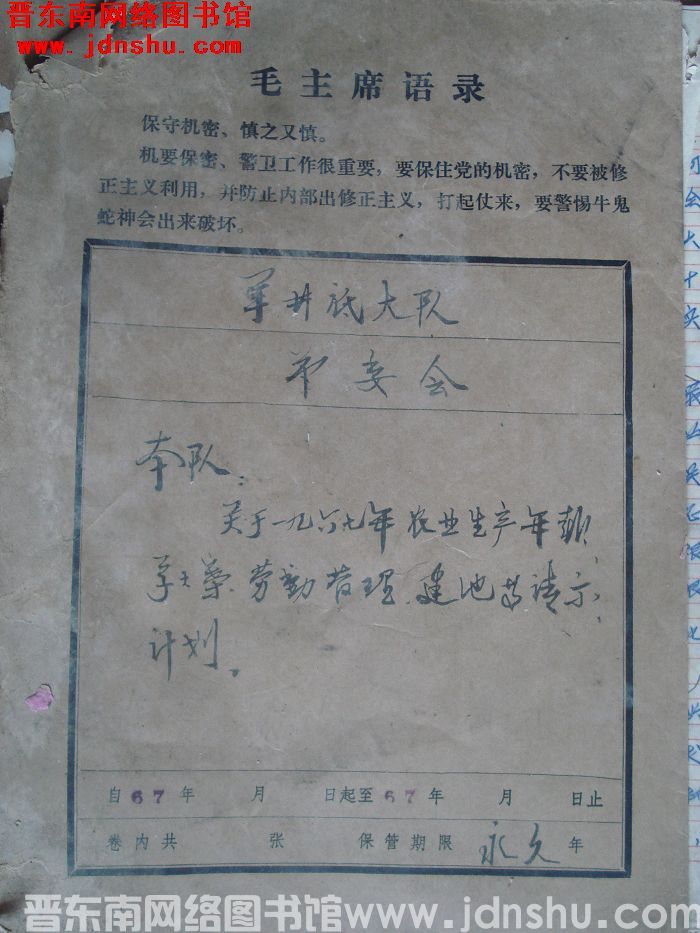 晋东南网络图书馆
www.jdnshu.com
毛主席语录
保守机密、慎之又慎。
机要保密、警卫工作很重要，要保住党的机密，不要被修
正主义利用，并防止内部出修正主义，打起仗来，要警惕牛鬼
蛇神会出来破坏。
大队
委会
本队：
关于一九六七年农业生产年报、
劳动管理、建池等请示、
计划。
自67年 月 日起至67年 月 日止
卷内共 张 保管期限永久年
晋东南网络图书馆www.jdnshu.com